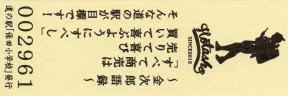 Hotasho
SINCE2015
～金次郎語録～
「すべて商売は
売りて喜び
買いて喜ぶようにすべし」
そんな道の駅が目標です！
002961
道の駅「保田小学校」発行